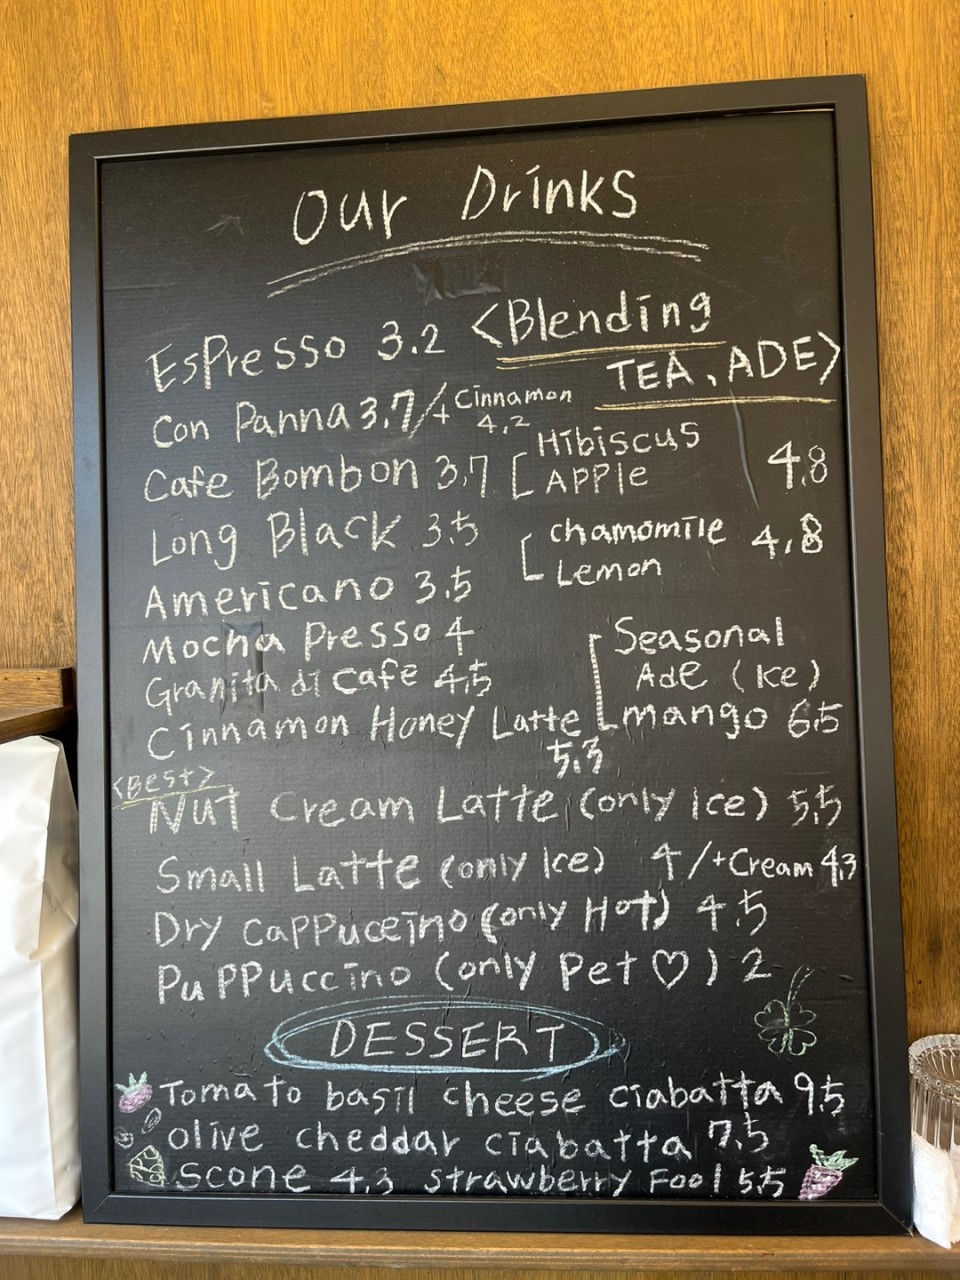 Our Drinks
Espresso 3.2
Con Panna 3.7/+Cinnamon 4.2
Cafe Bombon 3.7
Long Black 3.5
Americano 3.5
Mocha Presso 4
Granita di cafe 4.5
Cinnamon Honey Latte 5.3
<Blending
TEA, ADE>
Hibiscus
APPle 4.8
chamomile 4.8
Lemon
Seasonal
Ade (Ice)
mango 6.5
<Best>
Nut Cream Latte (only Ice) 5.5
Small Latte (only Ice) 4/+Cream 4.3
Dry cappuccino (only Hot) 4.5
Puppuccino (only pet ♡) 2
DESSERT
Tomato basil cheese ciabatta 9.5
olive cheddar ciabatta 7.5
Scone 4.3 strawberry Fool 5.5